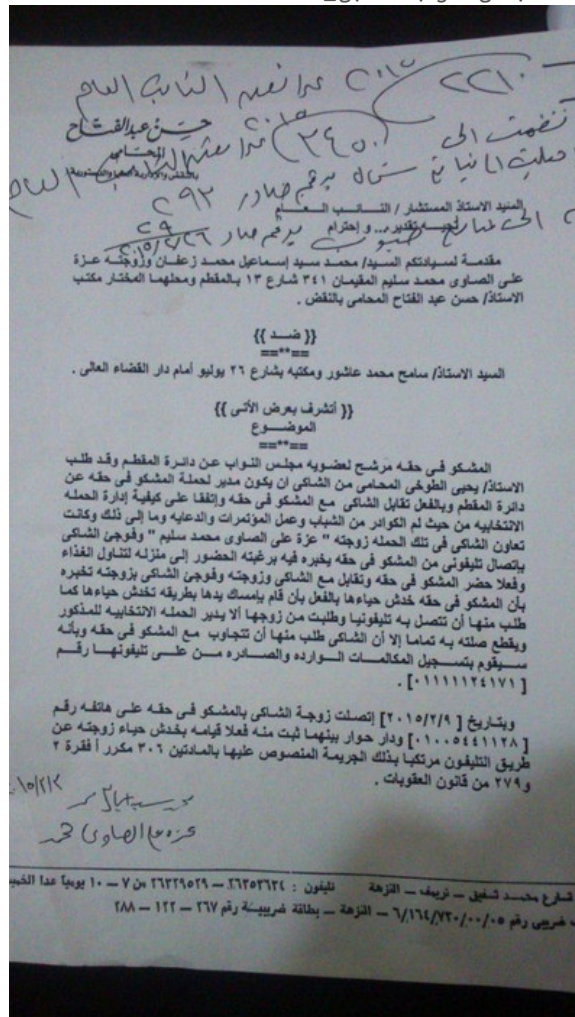 ٢٢١٠ ٢٠١٥ عرائض النائب العام
حسن عبدالفتاح
المحامى
السيد الاستاذ المستشار / النائب العام
تحية تقدير ... و إحترام
مقدمة لسيادتكم السيد/ محمد سيد إسماعيل محمد زعفان وزوجته عزة
على الصاوى محمد سليم المقيمان ٣٤١ شارع ١٣ بالمقطم ومحلهما المختار مكتب
الاستاذ/ حسن عبد الفتاح المحامى بالنقض .
{{ ضد }}
==**==
السيد الاستاذ/ سامح محمد عاشور ومكتبه بشارع ٢٦ يوليو أمام دار القضاء العالى .
{{ أتشرف بعرض الأتى }}
الموضوع
==**==
المشكو فى حقه مرشح لعضويه مجلس النواب عن دائرة المقطم وقد طلب
الاستاذ/ يحيى الطوخى المحامى من الشاكى ان يكون مدير لحملة المشكو فى حقه عن
دائرة المقطم وبالفعل تقابل الشاكى مع المشكو فى حقه وإتفقا على كيفية إدارة الحمله
الانتخابيه من حيث لم الكوادر من الشباب وعمل المؤتمرات والدعايه وما إلى ذلك وكانت
تعاون الشاكى فى تلك الحمله زوجته " عزة على الصاوى محمد سليم " وفوجئ الشاكى
بإتصال تليفونى من المشكو فى حقه يخبره فيه برغبته الحضور إلى منزله لتناول الغذاء
وفعلا حضر المشكو فى حقه وتقابل مع الشاكى وزوجته وفوجئ الشاكى بزوجته تخبره
بأن المشكو فى حقه خدش حياءها بالفعل بأن قام بإمساك يدها بطريقه تخدش حياءها كما
طلب منها أن تتصل به تليفونيا وطلبت من زوجها ألا يدير الحمله الانتخابيه للمذكور
ويقطع صلته به تماما إلا أن الشاكى طلب منها أن تتجاوب مع المشكو فى حقه وبأنه
سيقوم بتسجيل المكالمات الوارده والصادره من على تليفونها رقم
[ ٠١١١١١٢٤١٧١ ] .
وبتاريخ [ ٢٠١٥/٢/٩ ] إتصلت زوجة الشاكى بالمشكو فى حقه على هاتفه رقم
[ ٠١٠٠٥٤٤١١٢٨ ] ودار حوار بينهما ثبت منه فعلا قيامه بخدش حياء زوجته عن
طريق التليفون مرتكبا بذلك الجريمة المنصوص عليها بالمادتين ٣٠٦ مكرر أ فقرة ٢
و٢٧٩ من قانون العقوبات .
عزه على الصاوى محمد
شارع محمد شفيق – تريف – النزهة تليفون : ٢٦٣٥٣٦٢٤ – ٢٦٣٢٩٥٢٩ من ٧ – ١٠ يومياً عدا الخميس
ضريبى رقم ٦/١٦٤/٧٢٠/٠٠/٠٥ – النزهة – بطاقة ضريبية رقم ٢٦٧ – ١٢٢ – ٢٨٨